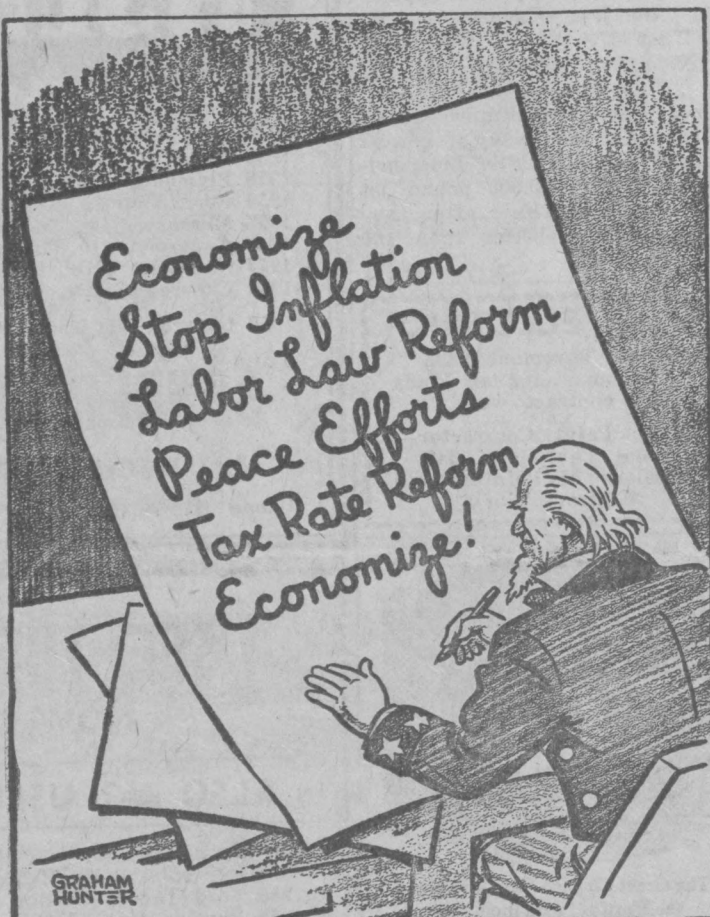 Economize
Stop Inflation
Labor Law Reform
Peace Efforts
Tax Rate Reform
Economize!
GRAHAM
HUNTER